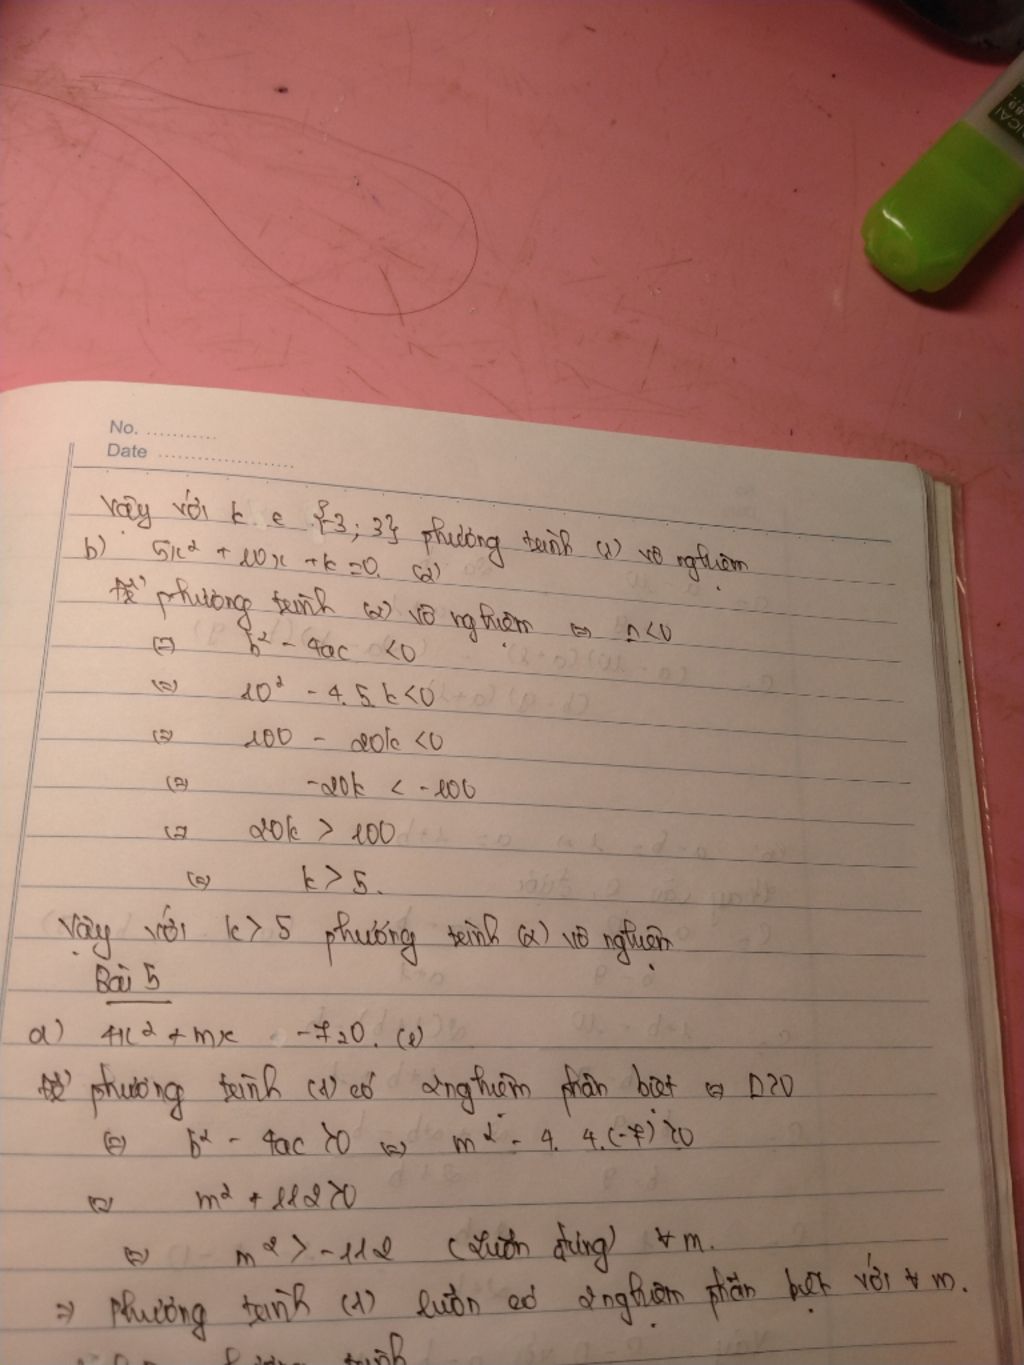 No. ...........
Date ......................
Vậy với k ∈ {-3; 3} phương trình (1) vô nghiệm
b) 5x² + 10x + k = 0. (2)
Để phương trình (2) vô nghiệm ⇔ Δ < 0
⇔ b² - 4ac < 0
⇔ 10² - 4.5.k < 0
⇔ 100 - 20k < 0
⇔ -20k < -100
⇔ 20k > 100
⇔ k > 5.
Vậy với k > 5 phương trình (2) vô nghiệm
Bài 5
a) 4x² + mx - 7 = 0. (1)
Để phương trình (1) có 2 nghiệm phân biệt ⇔ Δ > 0
⇔ b² - 4ac > 0 ⇔ m² - 4. 4.(-7) > 0
⇔ m² + 112 > 0
⇔ m² > -112 (Luôn đúng) ∀ m.
⇒ phương trình (1) luôn có 2 nghiệm phân biệt với ∀ m.